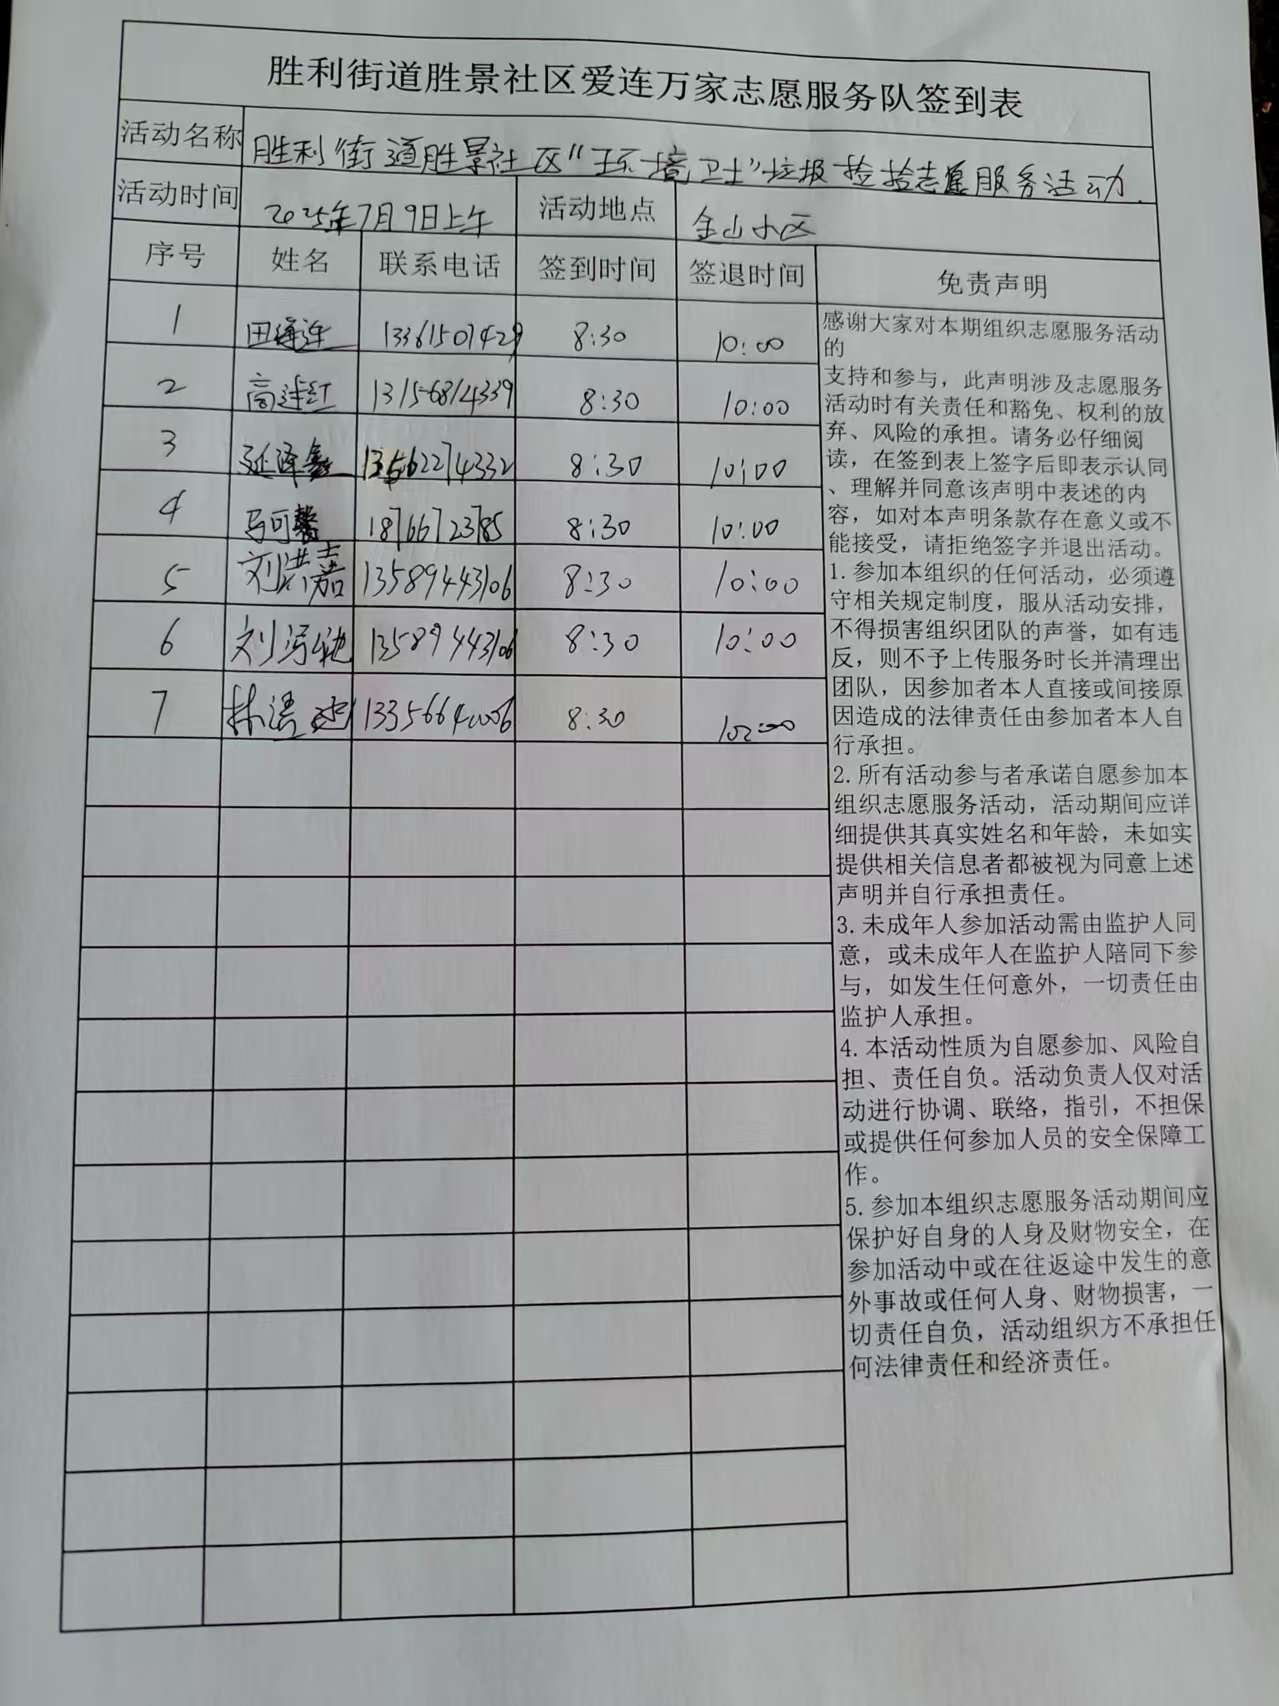 胜利街道胜景社区爱连万家志愿服务队签到表
活动名称 胜利街道胜景社区“环境卫士”垃圾捡拾志愿服务活动.
活动时间 2025年7月9日上午 活动地点 金山小区
序号 姓名 联系电话 签到时间 签退时间 免责声明
1 田 连 13361501429 8:30 10:00
2 高连红 13156814339 8:30 10:00
3 泽鑫 13562274332 8:30 10:00
4 马可馨 18766723785 8:30 10:00
5 刘洪嘉 13589443106 8:30 10:00
6 刘 13589443106 8:30 10:00
7 林 8:30 10:00
感谢大家对本期组织志愿服务活动
的
支持和参与，此声明涉及志愿服务
活动时有关责任和豁免、权利的放
弃、风险的承担。请务必仔细阅
读，在签到表上签字后即表示认同
、理解并同意该声明中表述的内
容，如对本声明条款存在意义或不
能接受，请拒绝签字并退出活动。
1. 参加本组织的任何活动，必须遵
守相关规定制度，服从活动安排，
不得损害组织团队的声誉，如有违
反，则不予上传服务时长并清理出
团队，因参加者本人直接或间接原
因造成的法律责任由参加者本人自
行承担。
2. 所有活动参与者承诺自愿参加本
组织志愿服务活动，活动期间应详
细提供其真实姓名和年龄，未如实
提供相关信息者都被视为同意上述
声明并自行承担责任。
3. 未成年人参加活动需由监护人同
意，或未成年人在监护人陪同下参
与，如发生任何意外，一切责任由
监护人承担。
4. 本活动性质为自愿参加、风险自
担、责任自负。活动负责人仅对活
动进行协调、联络，指引，不担保
或提供任何参加人员的安全保障工
作。
5. 参加本组织志愿服务活动期间应
保护好自身的人身及财物安全，在
参加活动中或在往返途中发生的意
外事故或任何人身、财物损害，一
切责任自负，活动组织方不承担任
何法律责任和经济责任。